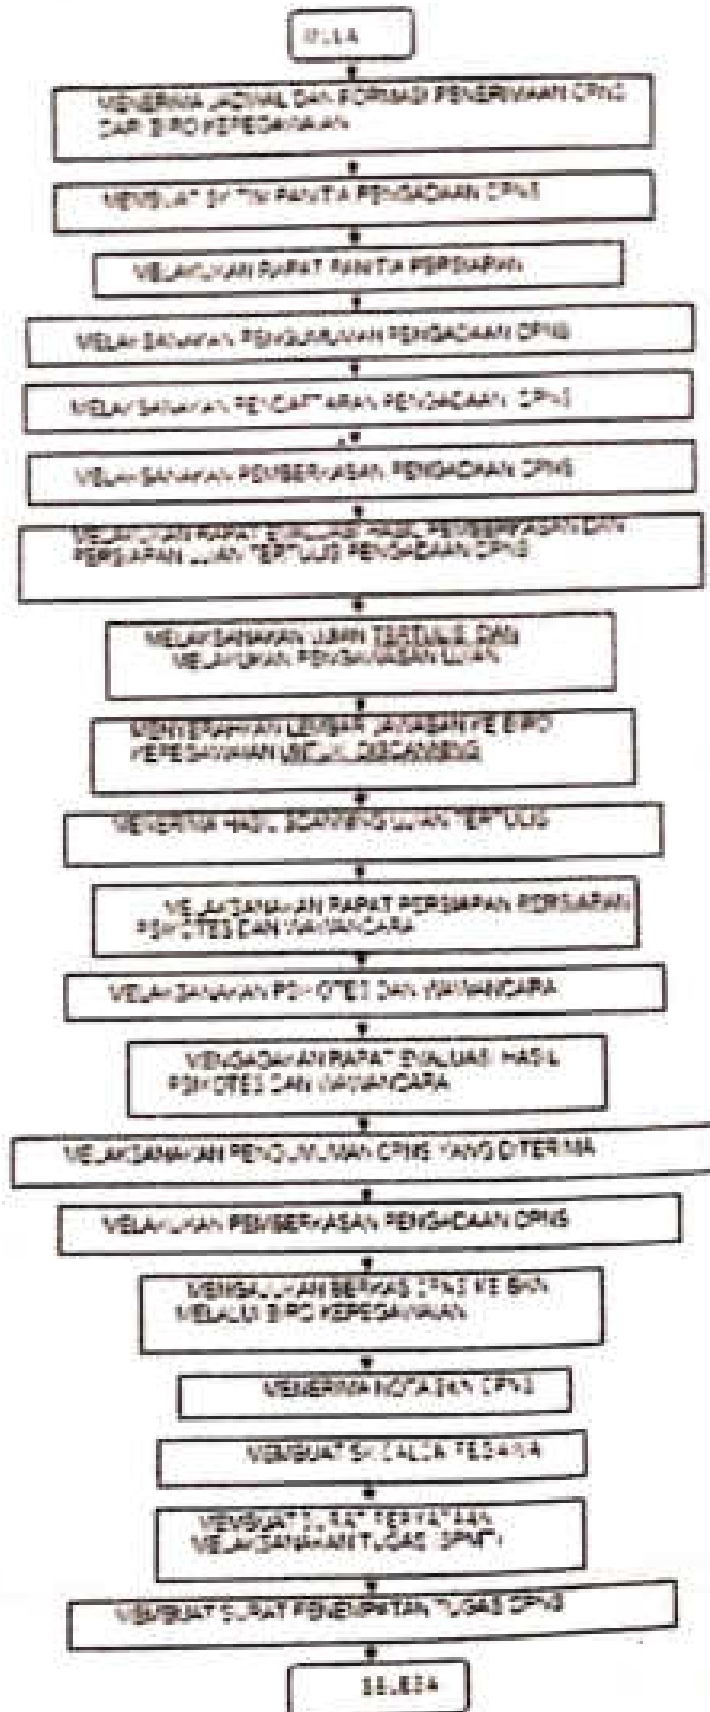 MULA
MENERIMA JADWAL DAN FORMASI PENERIMAAN CPNS
DARI BIRO KEPEGAWAIAN
MEMBUAT SK TIM PANITIA PENGADAAN CPNS
MELAKUKAN RAPAT PANITIA PERSIAPAN
MELAKSANAKAN PENGUMUMAN PENGADAAN CPNS
MELAKSANAKAN PENDAFTARAN PENGADAAN CPNS
MELAKSANAKAN PEMBERKASAN PENGADAAN CPNS
MELAKUKAN RAPAT EVALUASI HASIL PEMBERKASAN DAN
PERSIAPAN UJIAN TERTULIS PENGADAAN CPNS
MELAKSANAKAN UJIAN TERTULIS DAN
MELAKUKAN PENGAWASAN UJIAN
MENYERAHKAN LEMBAR JAWABAN KE BIRO
KEPEGAWAIAN UNTUK DISCANNING
MENERIMA HASIL SCANNING UJIAN TERTULIS
MELAKSANAKAN RAPAT PERSIAPAN PERSIAPAN
PSIKOTES DAN WAWANCARA
MELAKSANAKAN PSIKOTES DAN WAWANCARA
MENGADAKAN RAPAT EVALUASI HASIL
PSIKOTES DAN WAWANCARA
MELAKSANAKAN PENGUMUMAN CPNS YANG DITERIMA
MELAKUKAN PEMBERKASAN PENGADAAN CPNS
MENGAJUKAN BERKAS CPNS KE BKN
MELALUI BIRO KEPEGAWAIAN
MENERIMA NOTA BKN CPNS
MEMBUAT SK CALON PEGAWAI
MEMBUAT SURAT PERNYATAAN
MELAKSANAKAN TUGAS
MEMBUAT SURAT PENEMPATAN TUGAS CPNS
SELESAI